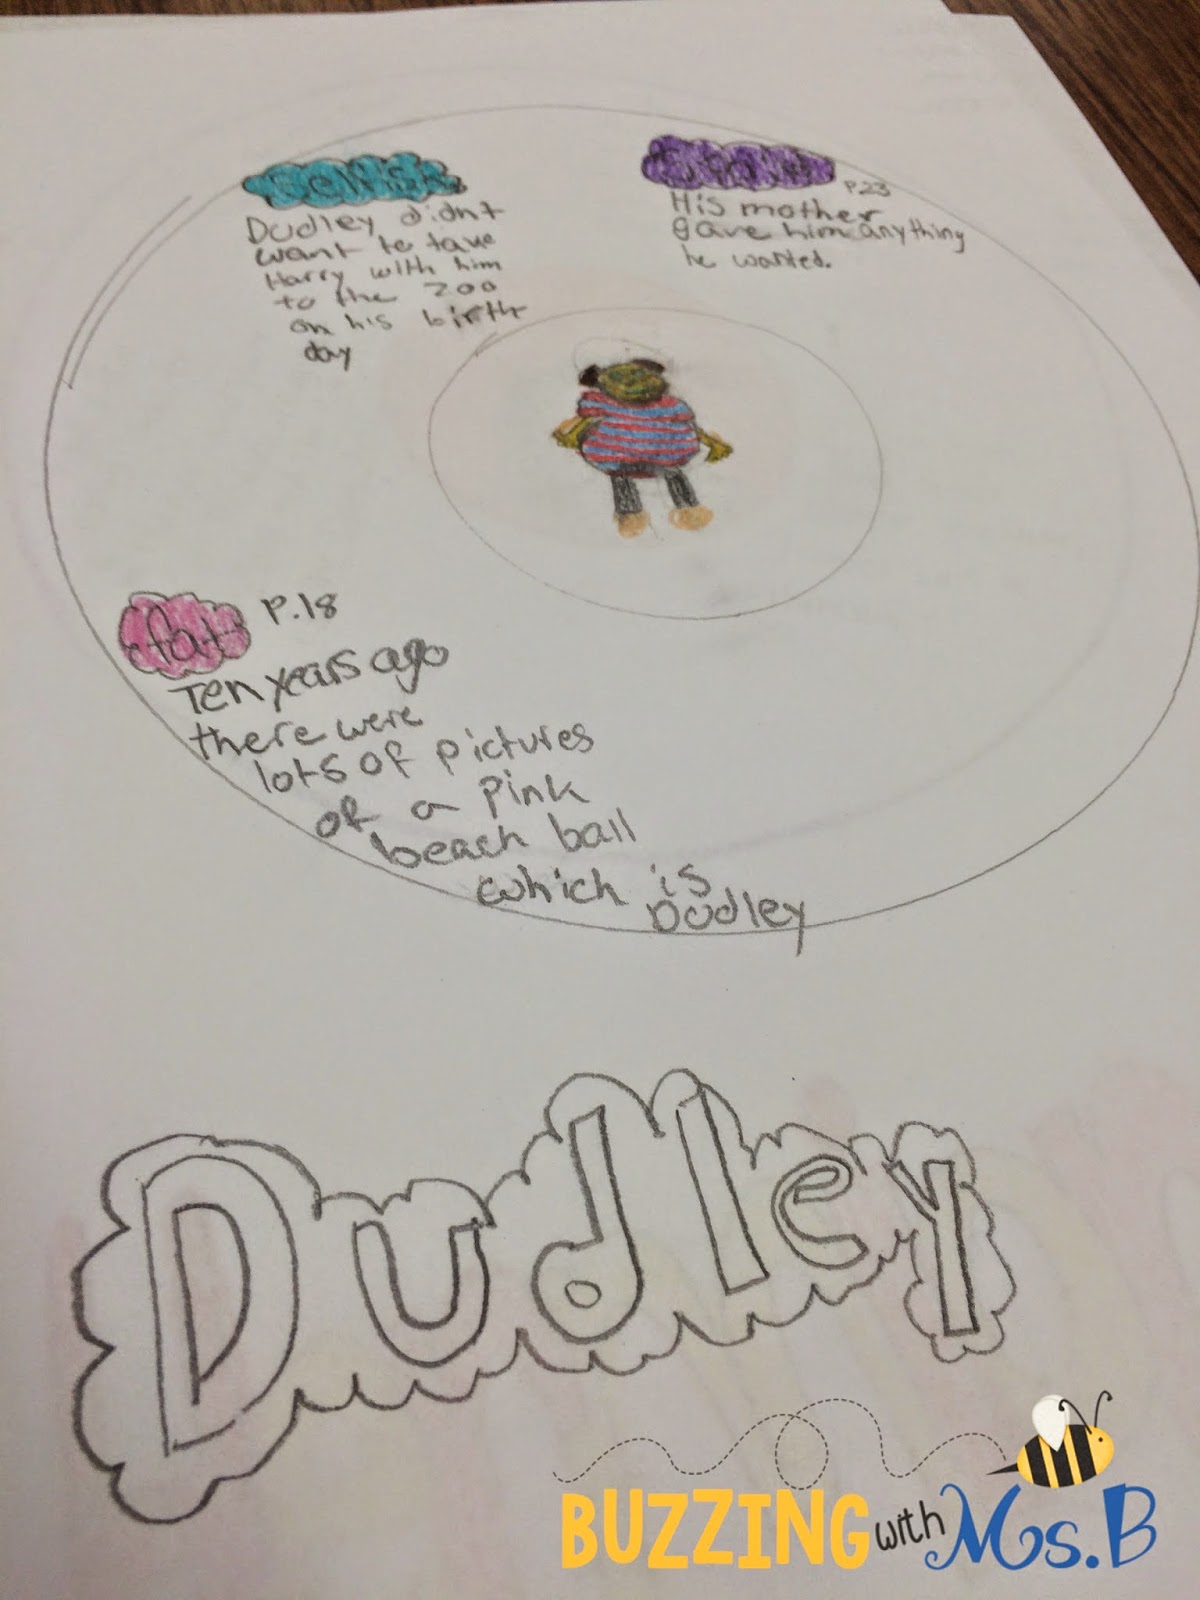 selfish
Dudley didnt
want to take
Harry with him
to the zoo
on his birth
day
P.23
His mother
gave him anything
he wanted.
fat P.18
Ten years ago
there were
lots of pictures
of a pink
beach ball
which is
Dudley
Dudley
BUZZING with Ms. B